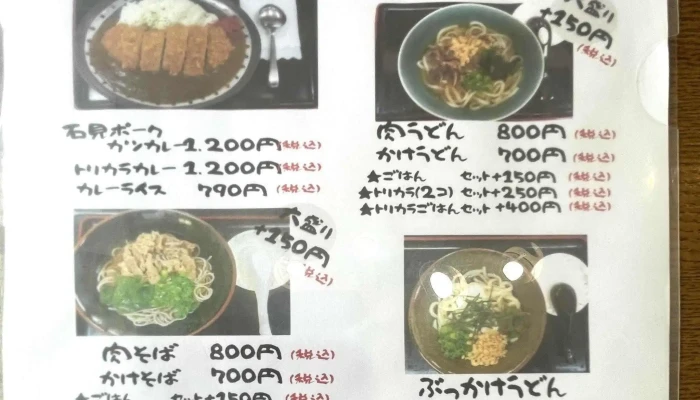 石見ポーク
カツカレー 1,200円(税込)
トリカラカレー 1,200円(税込)
カレーライス 790円(税込)
大盛り
+150円
(税込)
肉そば 800円(税込)
かけそば 700円(税込)
★ごはん セット+150円(税込)
大盛り
+150円
(税込)
肉うどん 800円(税込)
かけうどん 700円(税込)
★ごはん セット+150円(税込)
★トリカラ(2コ) セット+250円(税込)
★トリカラごはんセット+400円(税込)
ぶっかけうどん